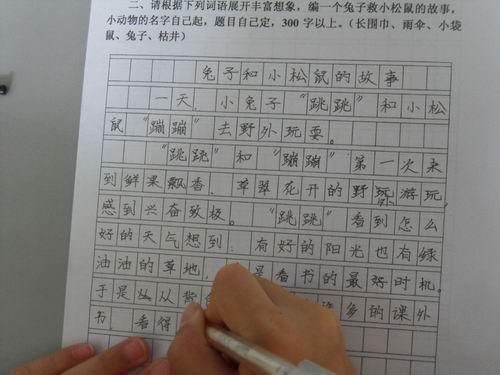 二、请根据下列词语展开丰富想象，编一个兔子救小松鼠的故事，
小动物的名字自己起，题目自己定，300字以上。（长围巾、雨伞、小袋
鼠、兔子、枯井）
兔子和小松鼠的故事
一天，小兔子“跳跳”和小松
鼠“蹦蹦”去野外玩耍。
“跳跳”和“蹦蹦”第一次来
到鲜果飘香、草翠花开的野外游玩，
感到兴奋致极。“跳跳”看到怎么
好的天气想到：有好的阳光也有绿
油油的草地，是看书的最好时机。
于是从背多的课外
书，看得